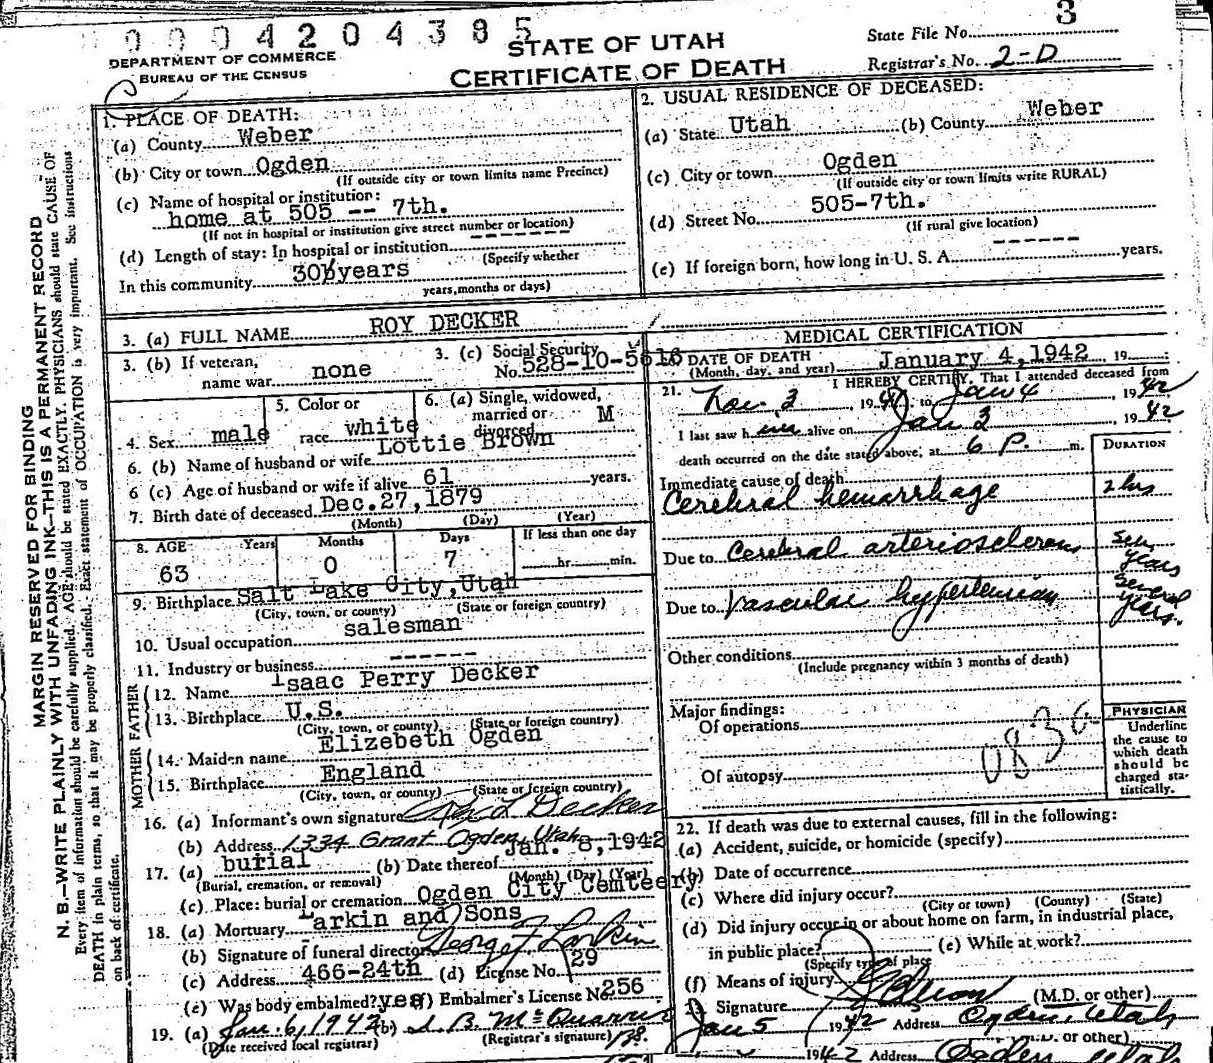 0004204385
3
STATE OF UTAH
CERTIFICATE OF DEATH
DEPARTMENT OF COMMERCE
BUREAU OF THE CENSUS
State File No.
Registrar's No. 2-D
1. PLACE OF DEATH:
(a) County Weber
(b) City or town Ogden
(If outside city or town limits name Precinct)
(c) Name of hospital or institution:
home at 505 -- 7th.
(If not in hospital or institution give street number or location)
(d) Length of stay: In hospital or institution
(Specify whether
In this community 30 years
years, months or days)
2. USUAL RESIDENCE OF DECEASED:
(a) State Utah (b) County Weber
(c) City or town Ogden
(If outside city or town limits write RURAL)
(d) Street No. 505-7th.
(If rural give location)
(e) If foreign born, how long in U. S. A. ------- years.
3. (a) FULL NAME ROY DECKER
3. (b) If veteran,
name war none
3. (c) Social Security
No. 528-10-5616
4. Sex male
5. Color or
race white
6. (a) Single, widowed,
married or
divorced M
6. (b) Name of husband or wife Lottie Brown
6 (c) Age of husband or wife if alive 61 years.
7. Birth date of deceased Dec. 27, 1879
(Month) (Day) (Year)
8. AGE Years Months Days If less than one day
63 0 7 hr. min.
9. Birthplace Salt Lake City, Utah
(City, town, or county) (State or foreign country)
10. Usual occupation salesman
11. Industry or business -------
FATHER
12. Name Isaac Perry Decker
13. Birthplace U.S.
(City, town, or county) (State or foreign country)
MOTHER
14. Maiden name Elizebeth Ogden
15. Birthplace England
(City, town, or county) (State or foreign country)
16. (a) Informant's own signature Roy L Decker
(b) Address 1334 Grant Ogden, Utah
17. (a) burial (b) Date thereof Jan. 8, 1942
(Burial, cremation, or removal) (Month) (Day) (Year)
(c) Place: burial or cremation Ogden City Cemteery
18. (a) Mortuary Larkin and Sons
(b) Signature of funeral director George F Larkin
(c) Address 466-24th (d) License No. 29
(e) Was body embalmed? yes (f) Embalmer's License No. 256
19. (a) Jan. 6, 1942 (b)
(Date received local registrar) (Registrar's signature)
MEDICAL CERTIFICATION
DATE OF DEATH
(Month, day, and year) January 4, 1942 19
21. I HEREBY CERTIFY, That I attended deceased from
Nov. 3, 1941, to Jan 4, 1942
I last saw him alive on Jan 3, 1942
death occurred on the date stated above, at 6 P. m.
DURATION
Immediate cause of death
Cerebral hemorrhage 2 hrs
Due to Cerebral arteriosclerosis Sev. years
Due to Vascular hypertension Several years.
Other conditions
(Include pregnancy within 3 months of death)
Major findings:
Of operations
Of autopsy
083
PHYSICIAN
Underline
the cause to
which death
should be
charged sta-
tistically.
22. If death was due to external causes, fill in the following:
(a) Accident, suicide, or homicide (specify)
(b) Date of occurrence
(c) Where did injury occur?
(City or town) (County) (State)
(d) Did injury occur in or about home on farm, in industrial place,
in public place? (e) While at work?
(Specify type of place
(f) Means of injury
23. Signature (M.D. or other)
Jan 5 1942 Address Ogden Utah
M.D. or other)
1942 Address Ogden Utah
MARGIN RESERVED FOR BINDING
N. B.—WRITE PLAINLY WITH UNFADING INK—THIS IS A PERMANENT RECORD
Every item of information should be carefully supplied. AGE should be stated EXACTLY. PHYSICIANS should state CAUSE OF
DEATH in plain terms, so that it may be properly classified. Exact statement of OCCUPATION is very important. See instructions
on back of certificate.